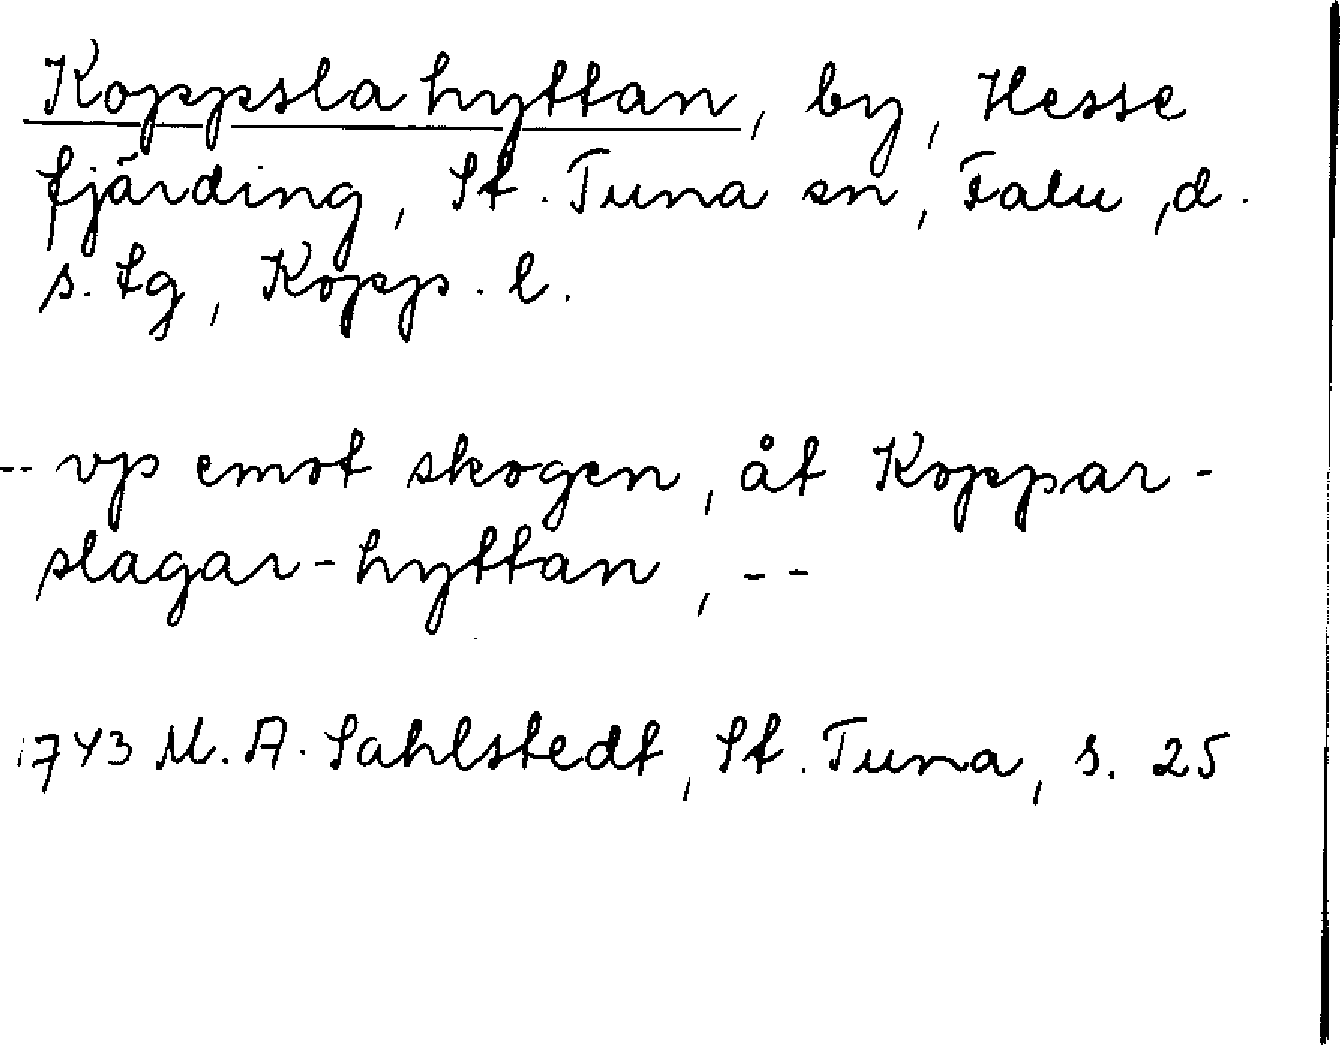 Koppslahyttan, by, Hesse
fjärding, St. Tuna sn, Falu, d.
s. tg, Kopp. l.
-- vp emot skogen, åt Koppar-
slagar-hyttan, --
1743 M. A. Sahlstedt, St. Tuna, s. 25